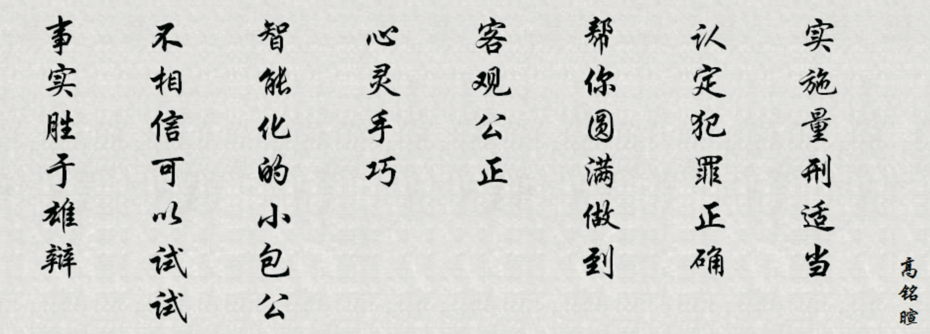 事实胜于雄辩
不相信可以试试
智能化的小包公
心灵手巧
客观公正
帮你圆满做到
认定犯罪正确
实施量刑适当
高铭暄